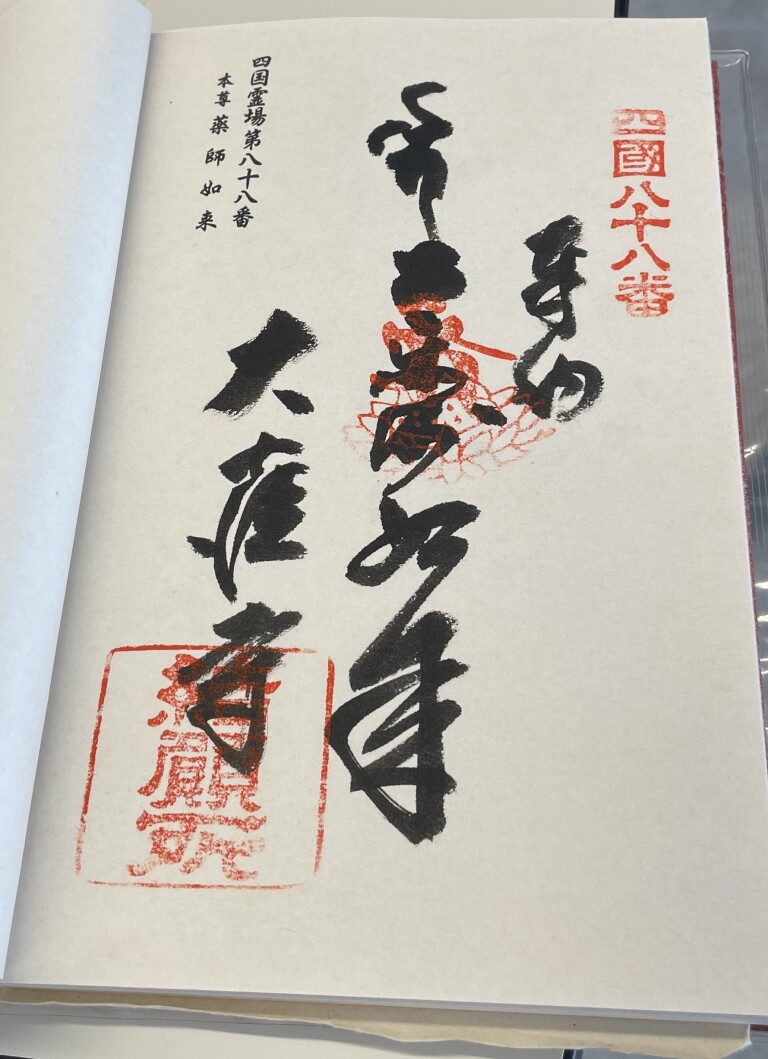 四國八十八番
奉納
薬師如来
四国霊場第八十八番
本尊 薬師如来
大窪寺
結願所